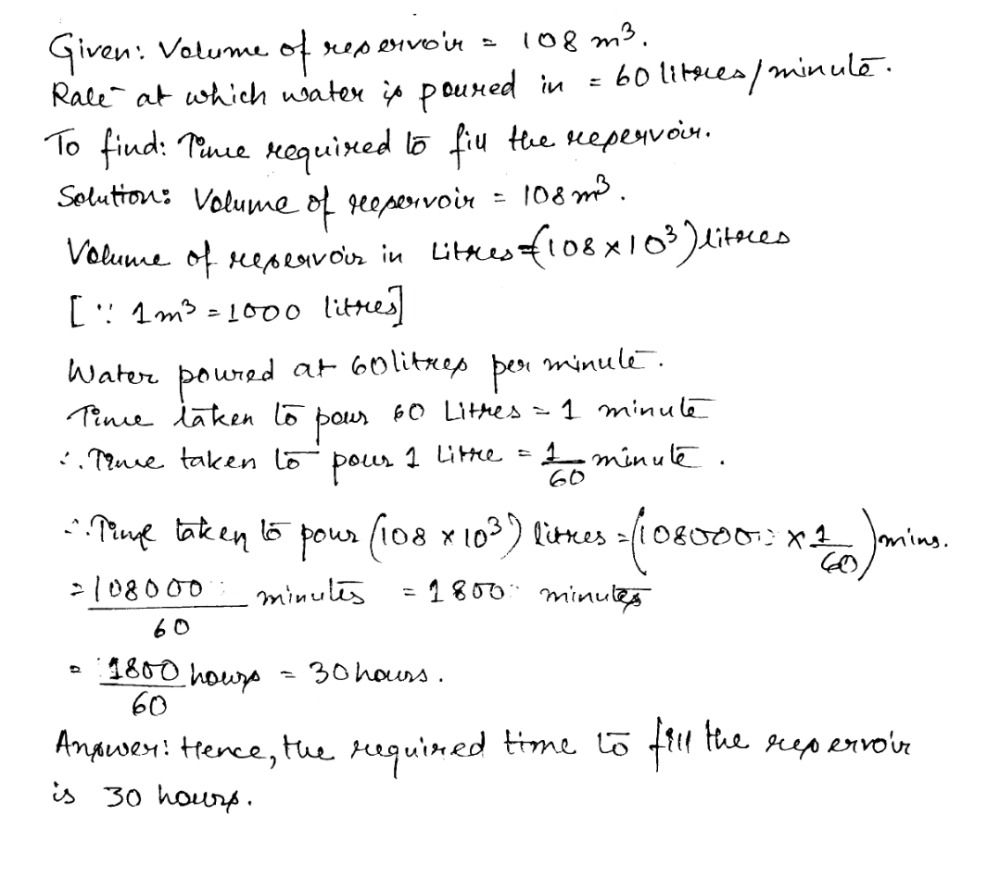 Given: Volume of reservoir = 108 m³.
Rate at which water is poured in = 60 litres/minute.
To find: Time required to fill the reservoir.
Solution: Volume of reservoir = 108 m³.
Volume of reservoir in Litres = (108 × 10³) litres
[∵ 1m³ = 1000 litres]
Water poured at 60 litres per minute.
Time taken to pour 60 Litres = 1 minute
∴ Time taken to pour 1 Litre = 1/60 minute.
∴ Time taken to pour (108 × 10³) litres = (108000 × 1/60) mins.
= 108000/60 minutes = 1800 minutes
= 1800/60 hours = 30 hours.
Answer: Hence, the required time to fill the reservoir
is 30 hours.